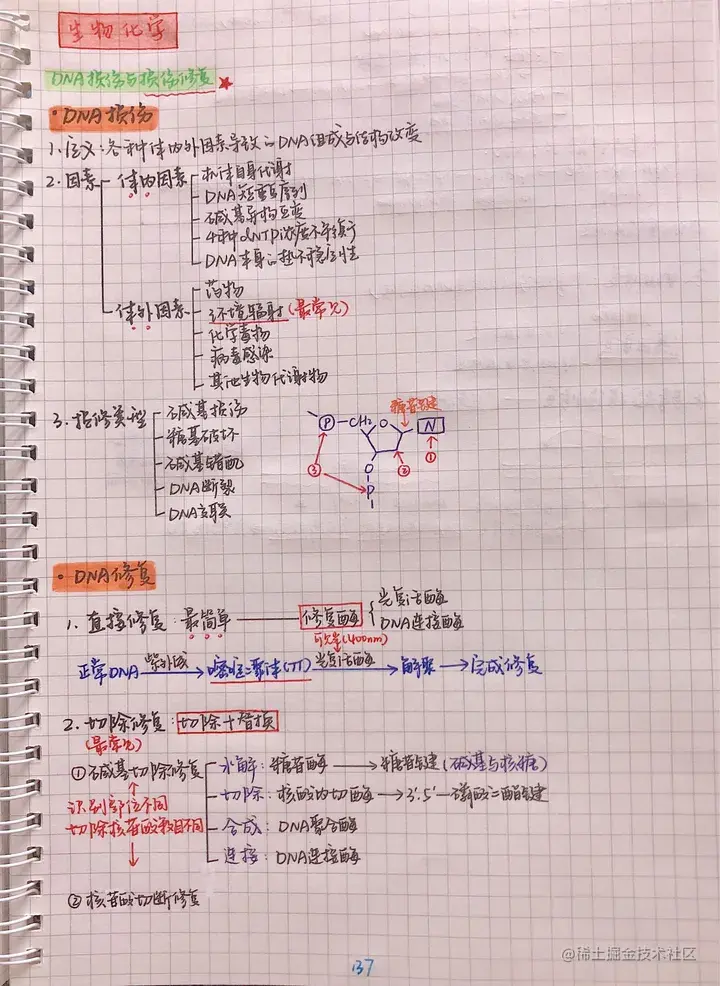 生物化学
DNA损伤与损伤修复
· DNA损伤
1. 定义:各种体内外因素导致的DNA组成与结构改变
2. 因素 体内因素 机体自身代谢
DNA复制
碱基异构互变
4种dNTP浓度不平衡
DNA本身的热不稳定性
体外因素 药物
环境辐射(最常见)
化学毒物
病毒感染
其他生物代谢物
3. 损修类型 碱基损伤
糖基破坏
碱基错配
DNA断裂
DNA交联
糖苷键
P CH₂ O N
③ ② ①
O
P
· DNA修复
1. 直接修复:最简单 修复酶 光复活酶
DNA连接酶
可见光(400nm)
正常DNA 紫外线 嘧啶二聚体(TT) 光复活酶 解聚 完成修复
2. 切除修复:切除+替换
(最常见)
①碱基切除修复 水解:糖苷酶 → 糖苷键(碱基与核糖)
识别部位不同 切除:核酸内切酶 → 3',5'-磷酸二酯键
切除核苷酸数目不同
合成:DNA聚合酶
连接:DNA连接酶
②核苷酸切断修复
137
@稀土掘金技术社区